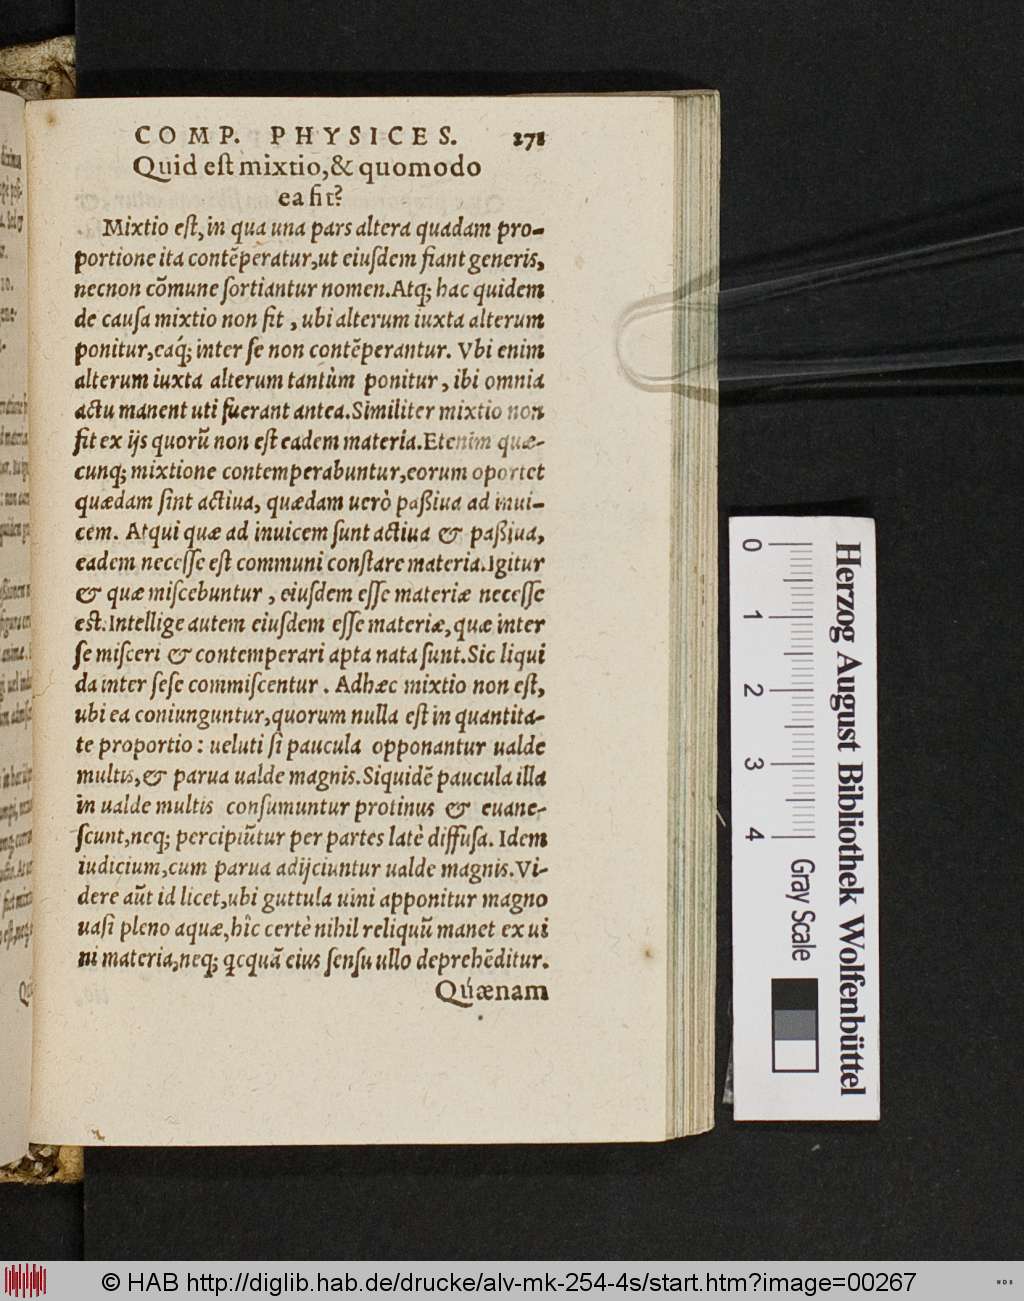 COMP. PHYSICES. 271
Quid eſt mixtio,& quomodo
ea fit?
Mixtio eſt, in qua una pars altera quadam pro-
portione ita contēperatur,ut eiuſdem fiant generis,
necnon cōmune ſortiantur nomen.Atq; hac quidem
de cauſa mixtio non fit , ubi alterum iuxta alterum
ponitur,eaq́; inter ſe non contēperantur. Vbi enim
alterum iuxta alterum tantùm ponitur, ibi omnia
actu manent uti fuerant antea.Similiter mixtio non
fit ex ijs quorū non eſt eadem materia.Etenim quæ-
cunq; mixtione contemperabuntur,eorum oportet
quædam ſint actiua, quædam uerò paßiua ad inui-
cem. Atqui quæ ad inuicem ſunt actiua & paßiua,
eadem neceſſe eſt communi conſtare materia.Igitur
& quæ miſcebuntur , eiuſdem eſſe materiæ neceſſe
eſt.Intellige autem eiuſdem eſſe materiæ,quæ inter
ſe miſceri & contemperari apta nata ſunt.Sic liqui
da inter ſeſe commiſcentur . Adhæc mixtio non eſt,
ubi ea coniunguntur,quorum nulla eſt in quantita-
te proportio : ueluti ſi paucula opponantur ualde
multis,& parua ualde magnis.Siquidē paucula illa
in ualde multis conſumuntur protinus & euane-
ſcunt,neq; percipiūtur per partes latè diffuſa. Idem
iudicium,cum parua adijciuntur ualde magnis.Vi-
dere aūt id licet,ubi guttula uini apponitur magno
uaſi pleno aquæ,hîc certè nihil reliquū manet ex ui
ni materia,neq; qcquā eius ſenſu ullo deprehēditur.
Quænam
Herzog August Bibliothek Wolfenbüttel
0 1 2 3 4 Gray Scale
© HAB http://diglib.hab.de/drucke/alv-mk-254-4s/start.htm?image=00267